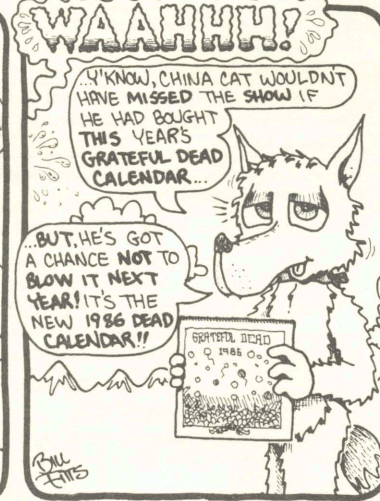 WAAHHH!
..Y'KNOW, CHINA CAT WOULDN'T
HAVE MISSED THE SHOW IF
HE HAD BOUGHT
THIS YEAR'S
GRATEFUL DEAD
CALENDAR...
...BUT, HE'S GOT
A CHANCE NOT TO
BLOW IT NEXT
YEAR! IT'S THE
NEW 1986 DEAD
CALENDAR!!
GRATEFUL DEAD
1986
BILL
FITTS